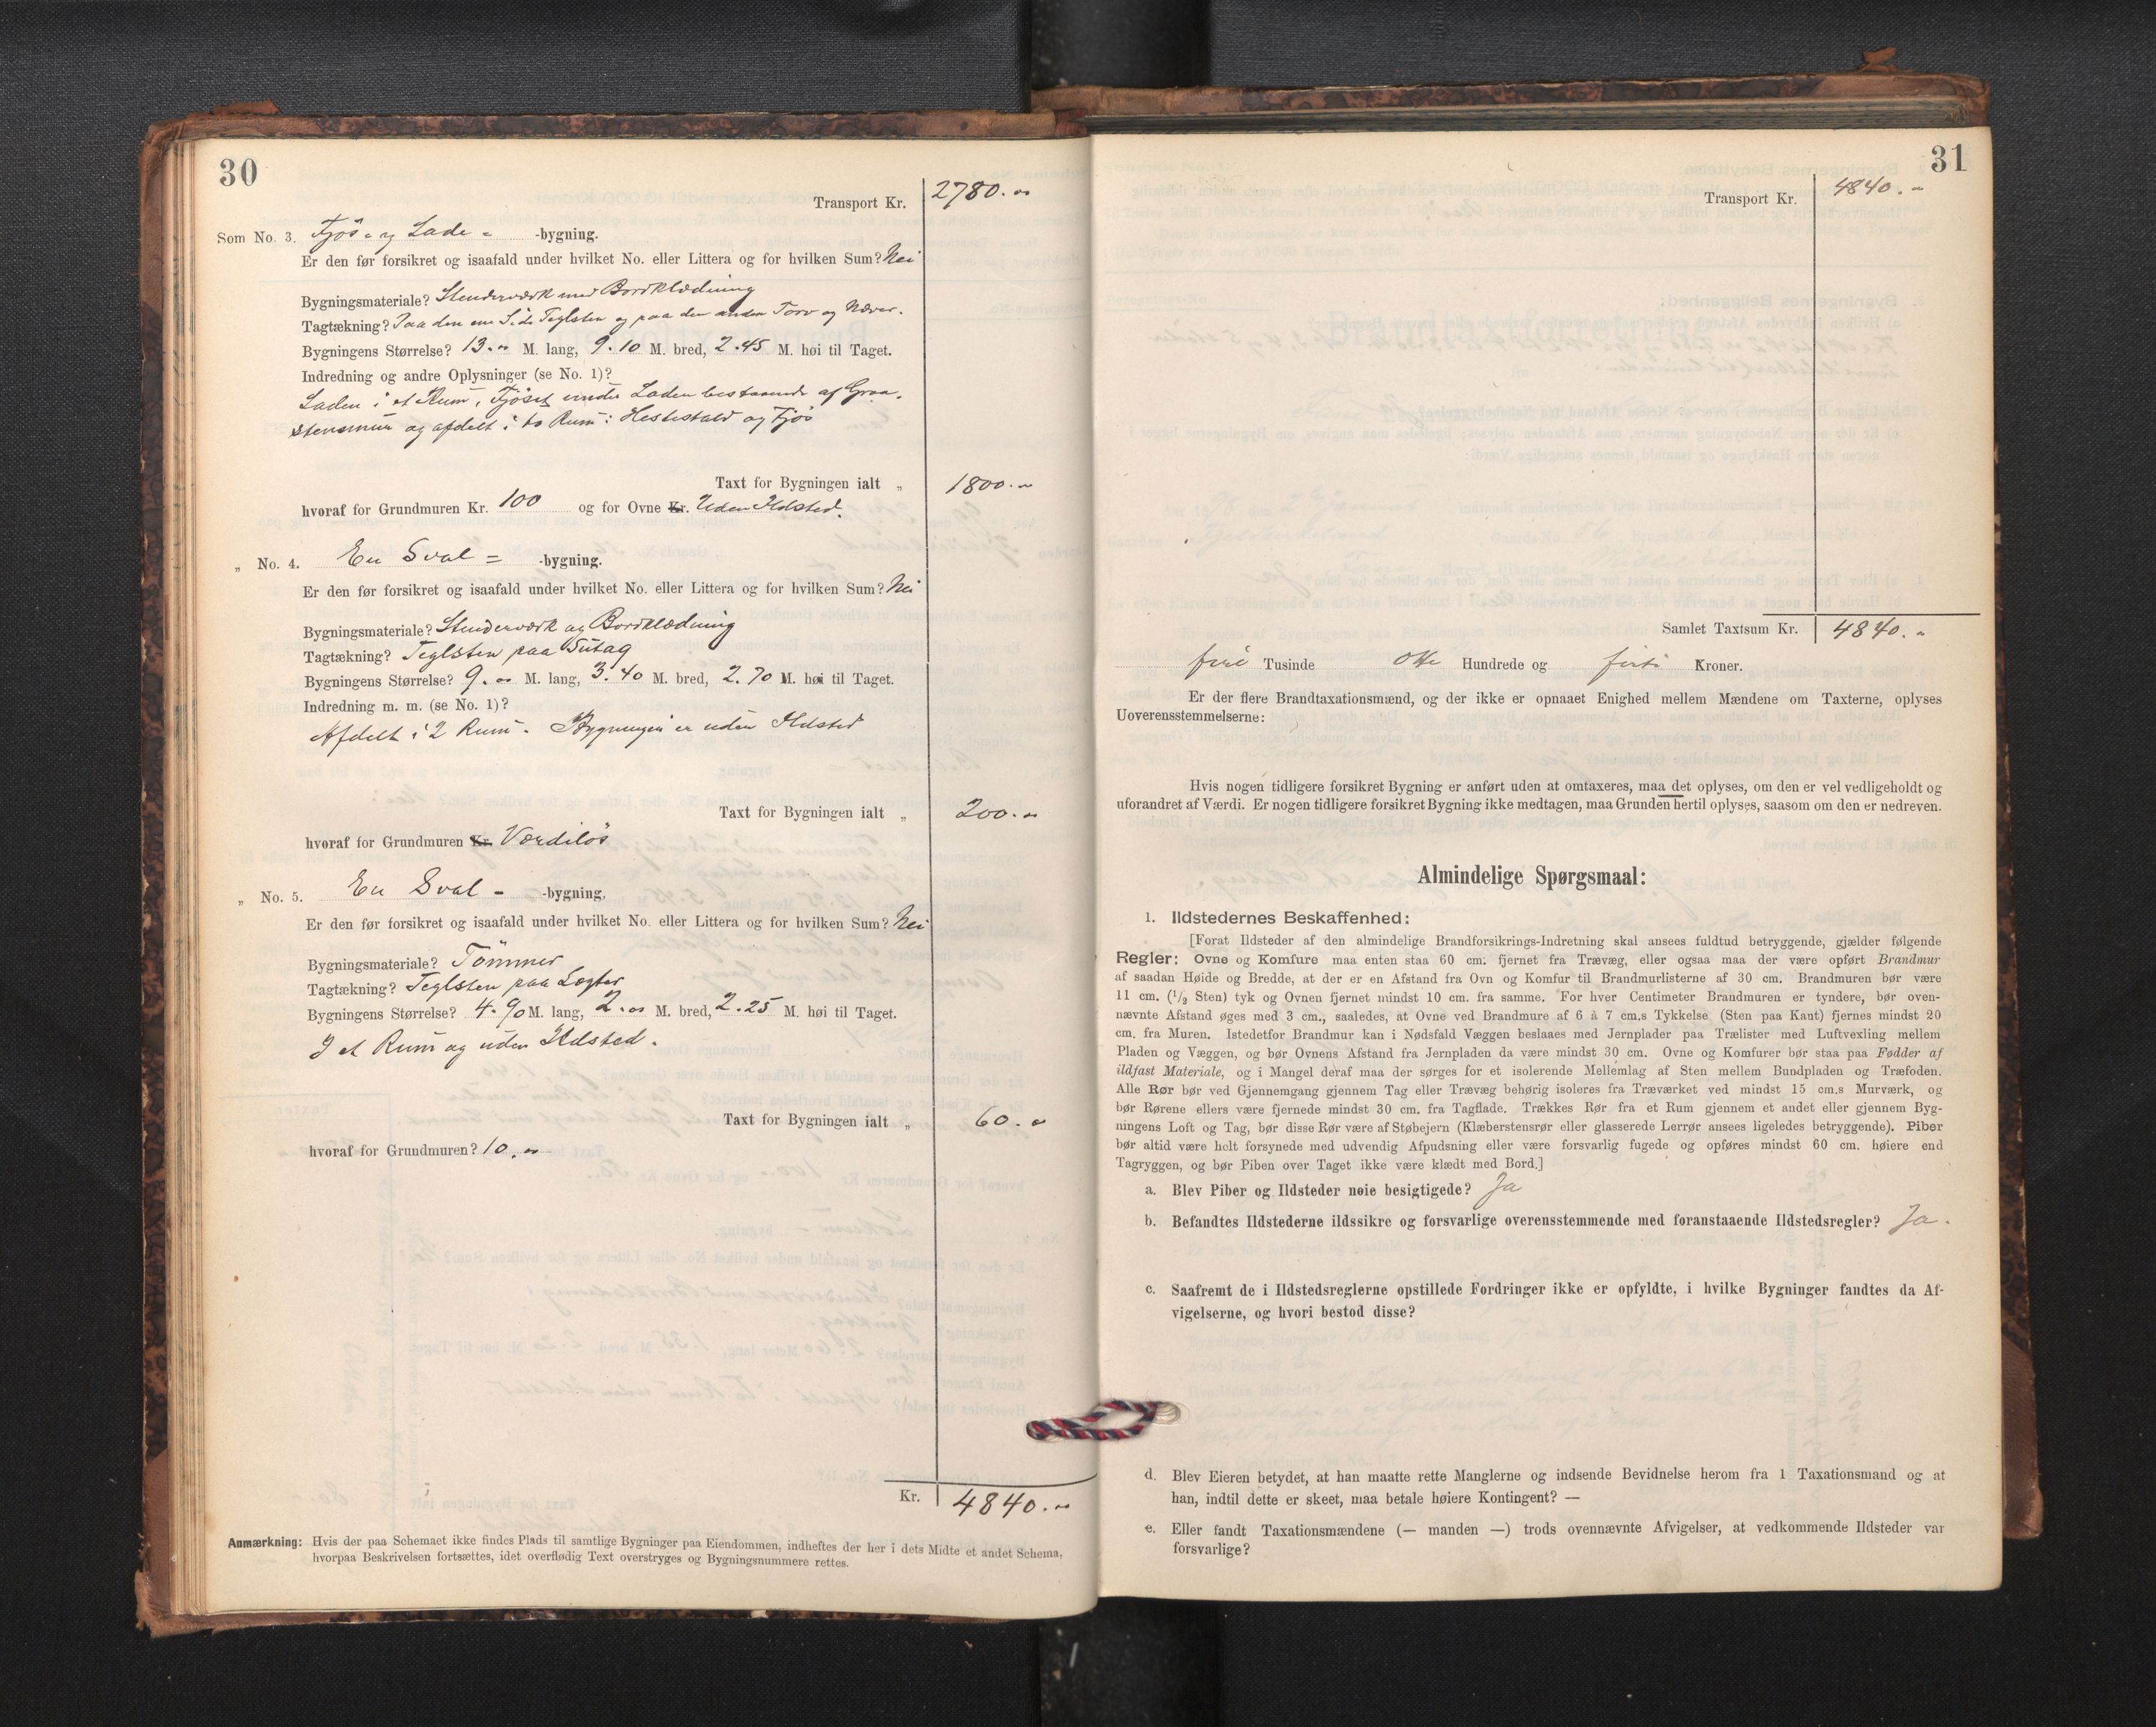 30
Transport Kr. 2780.„
Som No. 3. Fjös- og Lade- -bygning.
Er den før forsikret og isaafald under hvilket No. eller Littera og for hvilken Sum? Nei
Bygningsmateriale? Stenderværk med Bordklædning
Tagtækning? Paa den ene Side Teglsten og paa den anden Torv og Næver.
Bygningens Størrelse? 13.„ M. lang, 9.10 M. bred, 2.45 M. høi til Taget.
Indredning og andre Oplysninger (se No. 1)?
Laden i et Rum, Fjöset under Laden bestaaende af Graa-
stensmur og afdelt i to Rum: Hestestald og Fjös
Taxt for Bygningen ialt „ 1800.„
hvoraf for Grundmuren Kr. 100 og for Ovne Kr. Uden Ildsted.
„ No. 4. En Sval- -bygning.
Er den før forsikret og isaafald under hvilket No. eller Littera og for hvilken Sum? Nei
Bygningsmateriale? Stenderværk og Bordklædning
Tagtækning? Teglsten paa Sutag
Bygningens Størrelse? 9.„ M. lang, 3.40 M. bred, 2.70 M. høi til Taget.
Indredning m. m. (se No. 1)?
Afdelt i 2 Rum. Bygningen er uden Ildsted
Taxt for Bygningen ialt „ 200.„
hvoraf for Grundmuren Kr. Værdilös
„ No. 5. En Sval- -bygning,
Er den før forsikret og isaafald under hvilket No. eller Littera og for hvilken Sum? Nei
Bygningsmateriale? Tömmer
Tagtækning? Teglsten paa Lægter
Bygningens Størrelse? 4.90 M. lang, 2.„ M. bred, 2.25 M. høi til Taget.
I et Rum og uden Ildsted.
Taxt for Bygningen ialt „ 60.„
hvoraf for Grundmuren? 10.„
Kr. 4840.„
Anmærkning: Hvis der paa Schemaet ikke findes Plads til samtlige Bygninger paa Eiendommen, indheftes der her i dets Midte et andet Schema,
hvorpaa Beskrivelsen fortsættes, idet overflødig Text overstryges og Bygningsnummere rettes.
31
Transport Kr. 4840.„
Samlet Taxtsum Kr. 4840.„
fire Tusinde otte Hundrede og firti Kroner.
Er der flere Brandtaxationsmænd, og der ikke er opnaaet Enighed mellem Mændene om Taxterne, oplyses
Uoverensstemmelserne:
Hvis nogen tidligere forsikret Bygning er anført uden at omtaxeres, maa det oplyses, om den er vel vedligeholdt og
uforandret af Værdi. Er nogen tidligere forsikret Bygning ikke medtagen, maa Grunden hertil oplyses, saasom om den er nedreven.
Almindelige Spørgsmaal:
1. Ildstedernes Beskaffenhed:
[Forat Ildsteder af den almindelige Brandforsikrings-Indretning skal ansees fuldtud betryggende, gjælder følgende
Regler: Ovne og Komfure maa enten staa 60 cm. fjernet fra Trævæg, eller ogsaa maa der være opført Brandmur
af saadan Høide og Bredde, at der er en Afstand fra Ovn og Komfur til Brandmurlisterne af 30 cm. Brandmuren bør være
11 cm. (1/2 Sten) tyk og Ovnen fjernet mindst 10 cm. fra samme. For hver Centimeter Brandmuren er tyndere, bør oven-
nævnte Afstand øges med 3 cm., saaledes, at Ovne ved Brandmure af 6 à 7 cm.s Tykkelse (Sten paa Kant) fjernes mindst 20
cm. fra Muren. Istedetfor Brandmur kan i Nødsfald Væggen beslaaes med Jernplader paa Trælister med Luftvexling mellem
Pladen og Væggen, og bør Ovnens Afstand fra Jernpladen da være mindst 30 cm. Ovne og Komfurer bør staa paa Fødder af
ildfast Materiale, og i Mangel deraf maa der sørges for et isolerende Mellemlag af Sten mellem Bundpladen og Træfoden.
Alle Rør bør ved Gjennemgang gjennem Tag eller Trævæg behørig isoleres fra Træværket ved mindst 15 cm.s Murværk, og
bør Rørene ellers være fjernede mindst 30 cm. fra Tagflade. Trækkes Rør fra et Rum gjennem et andet eller gjennem Byg-
ningens Loft og Tag, bør disse Rør være af Støbejern (Klæberstensrør eller glasserede Lerrør ansees ligeledes betryggende). Piber
bør altid være helt forsynede med udvendig Afpudsning eller være forsvarlig fugede og opføres mindst 60 cm. høiere end
Tagryggen, og bør Piben over Taget ikke være klædt med Bord.]
a. Blev Piber og Ildsteder nøie besigtigede? Ja
b. Befandtes Ildstederne ildssikre og forsvarlige overensstemmende med foranstaaende Ildstedsregler? Ja.
c. Saafremt de i Ildstedsreglerne opstillede Fordringer ikke er opfyldte, i hvilke Bygninger fandtes da Af-
vigelserne, og hvori bestod disse?
d. Blev Eieren betydet, at han maatte rette Manglerne og indsende Bevidnelse herom fra 1 Taxationsmand og at
han, indtil dette er skeet, maa betale høiere Kontingent? —
e. Eller fandt Taxationsmændene (— manden —) trods ovennævnte Afvigelser, at vedkommende Ildsteder var
forsvarlige?